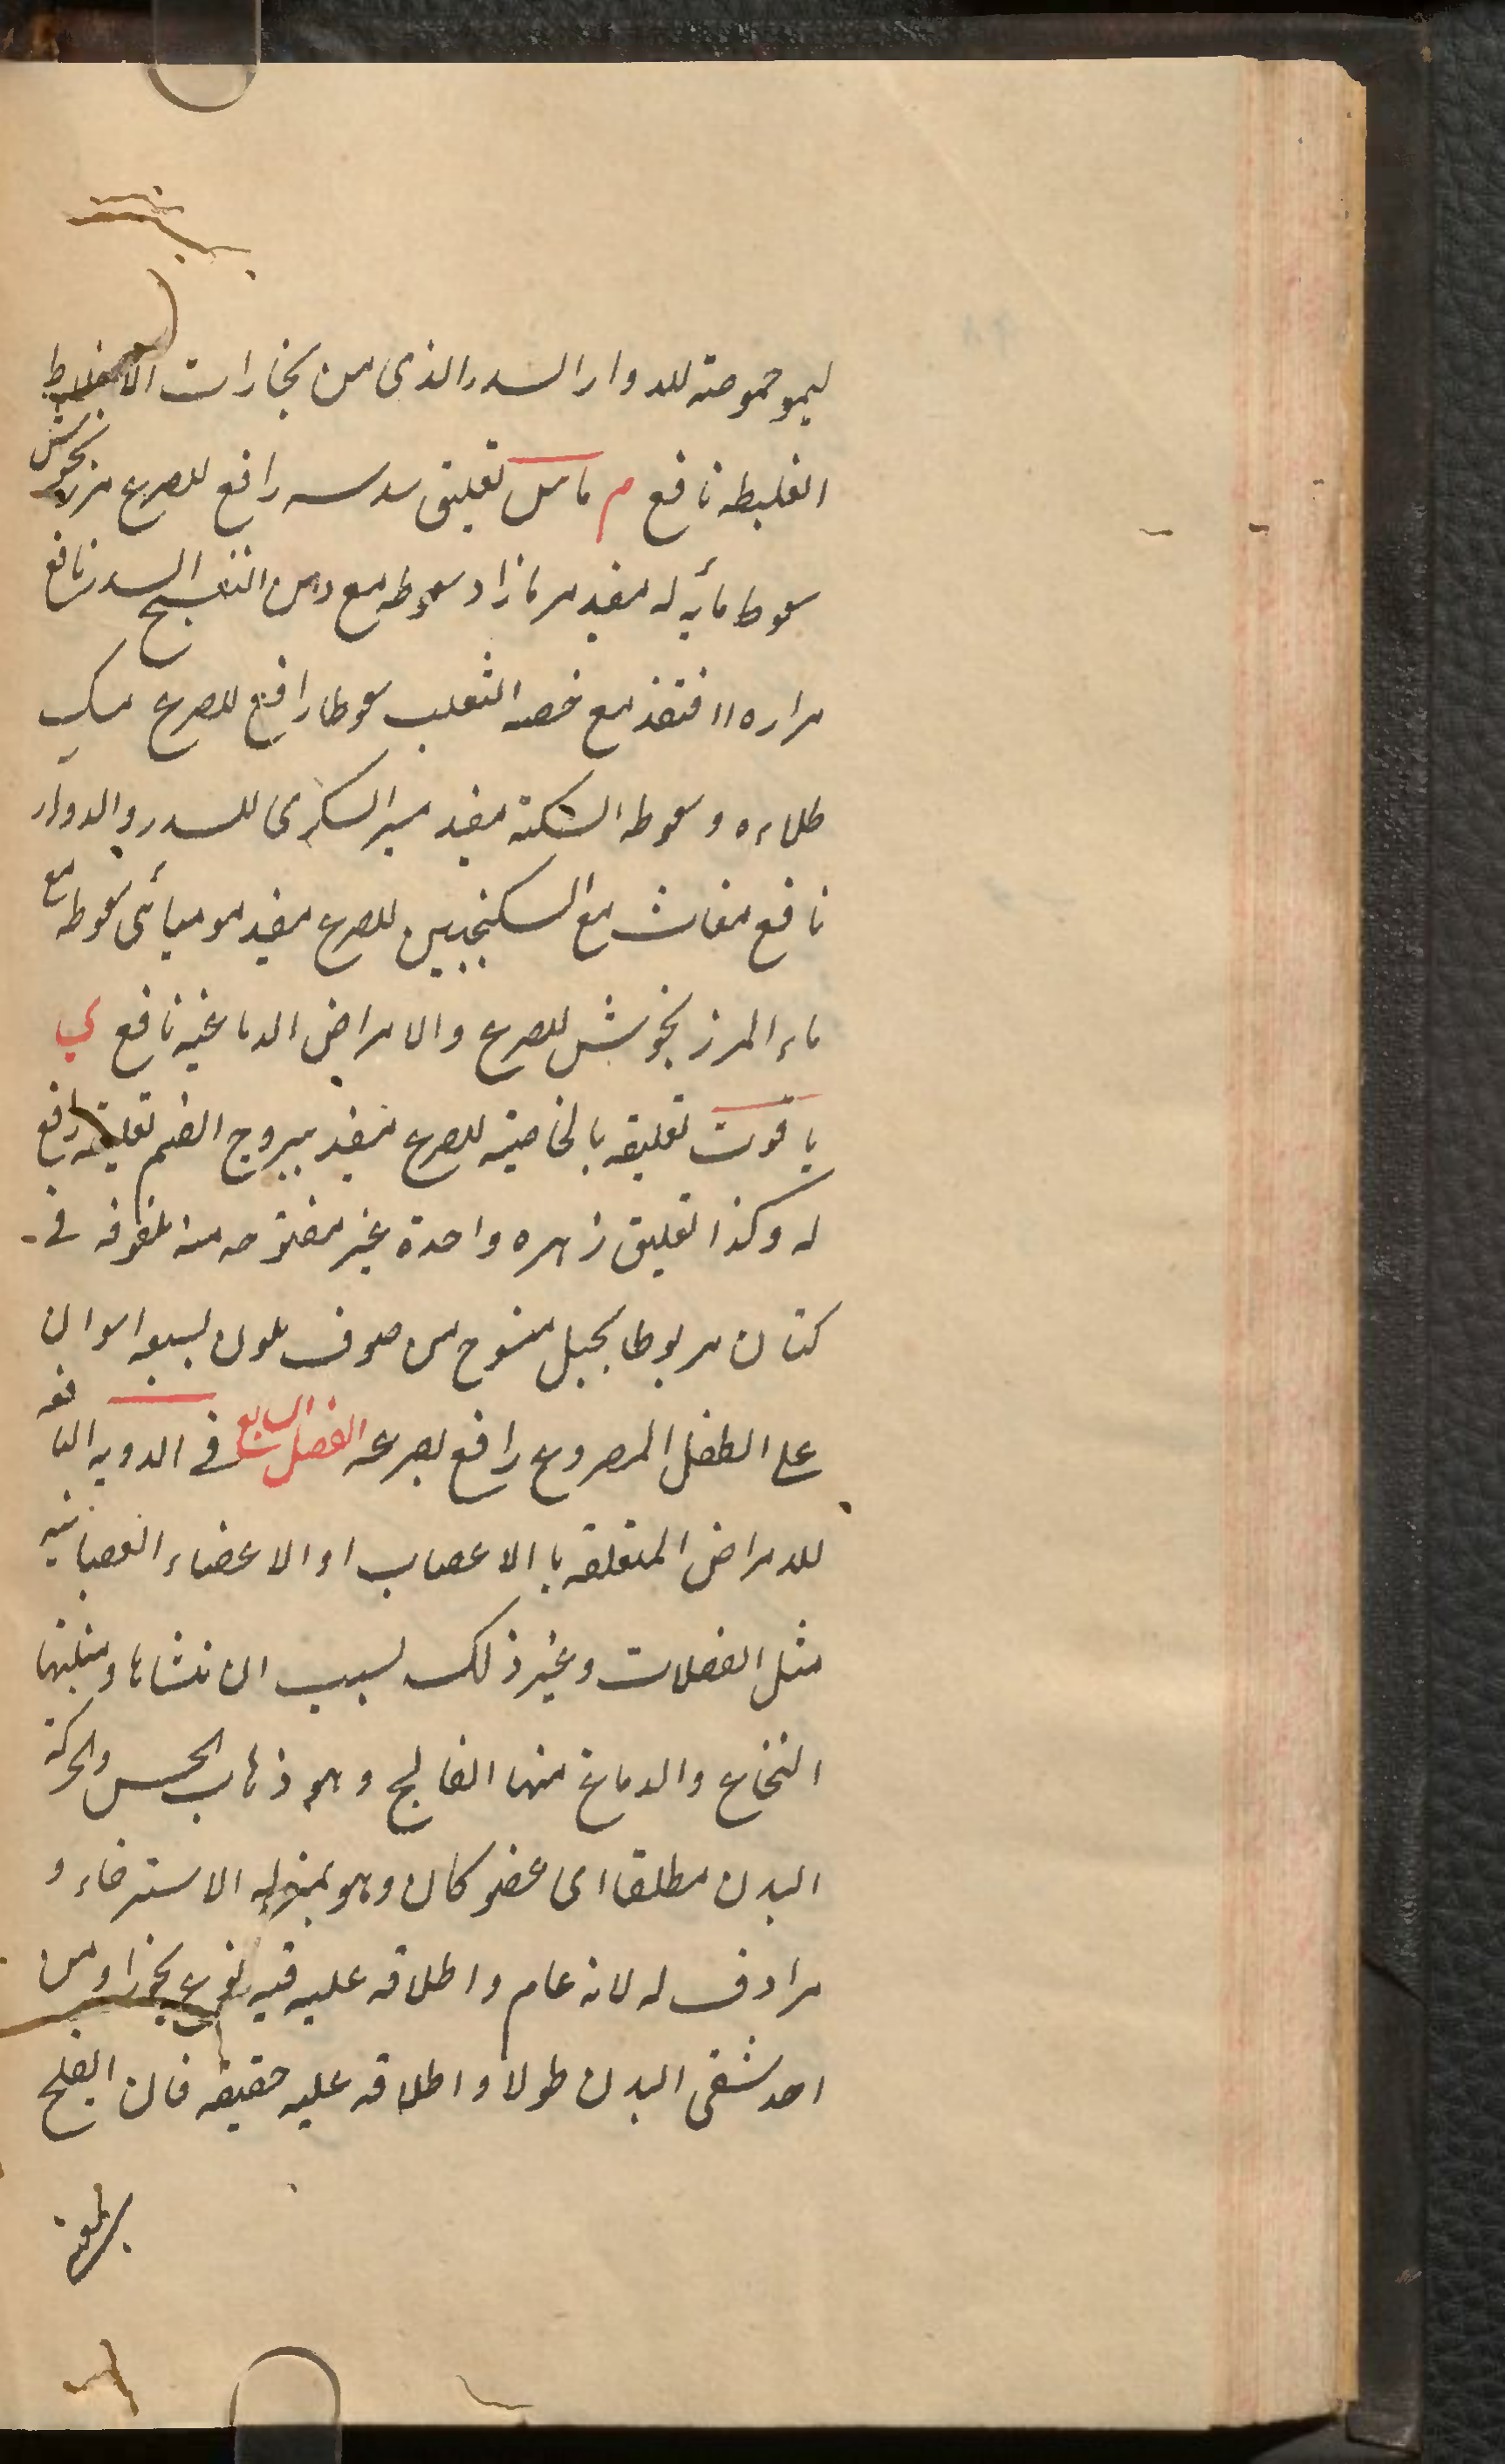 ليمو حموصته للدوار السدر الذى من بخارات الاخلاط
الغليطه نافع م ماس تعليق سدسه رافع للصرع مرزنجوش
سعوط مأيه له مفيد مرمازاد سعوطه مع دهن البنفسج السدر نافع
مراره القنفذ مع خصه الثعلب سعوطا رافع للصرع مسك
طلاءه وسعوطه السكته مفيد ميبر السكرى للسدر والدوار
نافع مغاث مع السكنجبين للصرع مفيد موميائى سعوطه مع
ماء المرزنجوش للصرع والامراض الدماغيه نافع ى
ياقوت تعليقه بالخاصيته للصرع مفيد يبروج الصنم تعليقه رافع
له وكذا تعليق زهره واحدة غير مفتوحه منه ملفوفه فى
كتان مربوطا بحبل منسوج من صوف ملون بسبعه الوان
على الطفل المصروع رافع لصرعه الفصل السابع فى الدويه النافعه
للامراض المتعلقه با الاعصاب او الاعضاء العصبانيه
مثل العضلات وغير ذلك لسبب ان منشاها ومنبتها
النخاع والدماغ منها الفالج وهو ذهاب الحس والحركة
البدن مطلقا اى عضو كان وهو بمنزله الاسترخاء و
مرادف له لانه عام واطلاقه عليه فيه نوع تجوز او من
احد شقى البدن طولا واطلاقه عليه حقيقه فان الفلج
بالمعنى